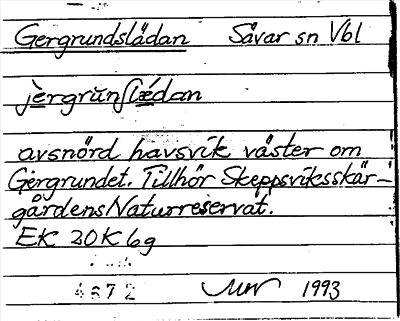 Gergrundslädan Sävar sn Vbl
jèrgrŭnʃlǽdan
avsnörd havsvik väster om
Gergrundet. Tillhör Skeppsviksskär-
gårdens Naturreservat.
EK 20K 6g
4672 1993